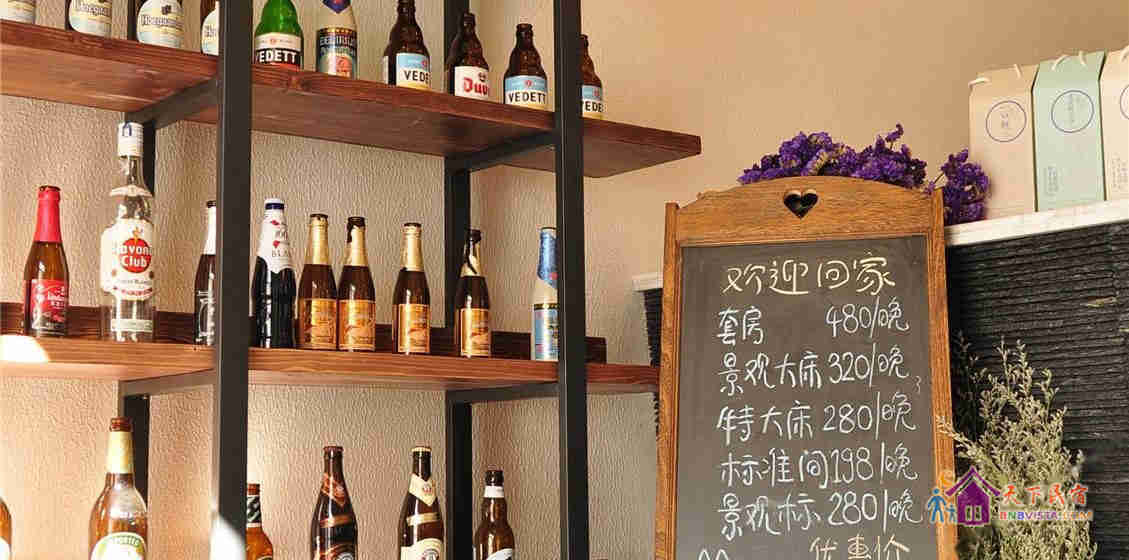 Hoegaarden
VEDETT
DELIRIUM
VEDETT
Duvel
VEDETT
VEDETT
Havana
Club
欢迎回家
套房 480/晚
景观大床 320/晚
特大床 280/晚
标准间 198/晚
景观标 280/晚
优惠价
天下民宿
BNBVISTA.COM